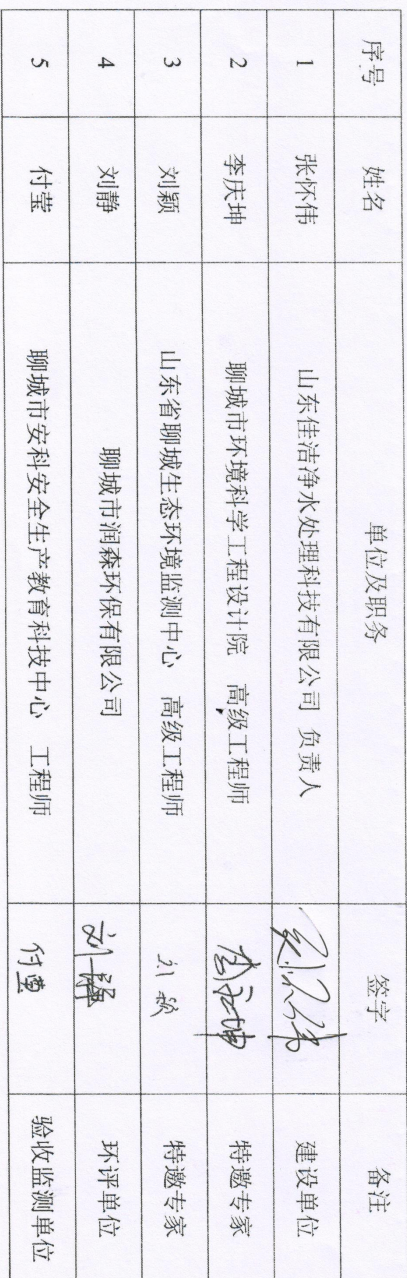 序号 姓名 单位及职务 签字 备注
1 张怀伟 山东佳洁净水处理科技有限公司 负责人 张怀伟 建设单位
2 李庆坤 聊城市环境科学工程设计院 高级工程师 李庆坤 特邀专家
3 刘颖 山东省聊城生态环境监测中心 高级工程师 刘颖 特邀专家
4 刘静 聊城市润森环保有限公司 刘静 环评单位
5 付莹 聊城市安科安全生产教育科技中心 工程师 付莹 验收监测单位